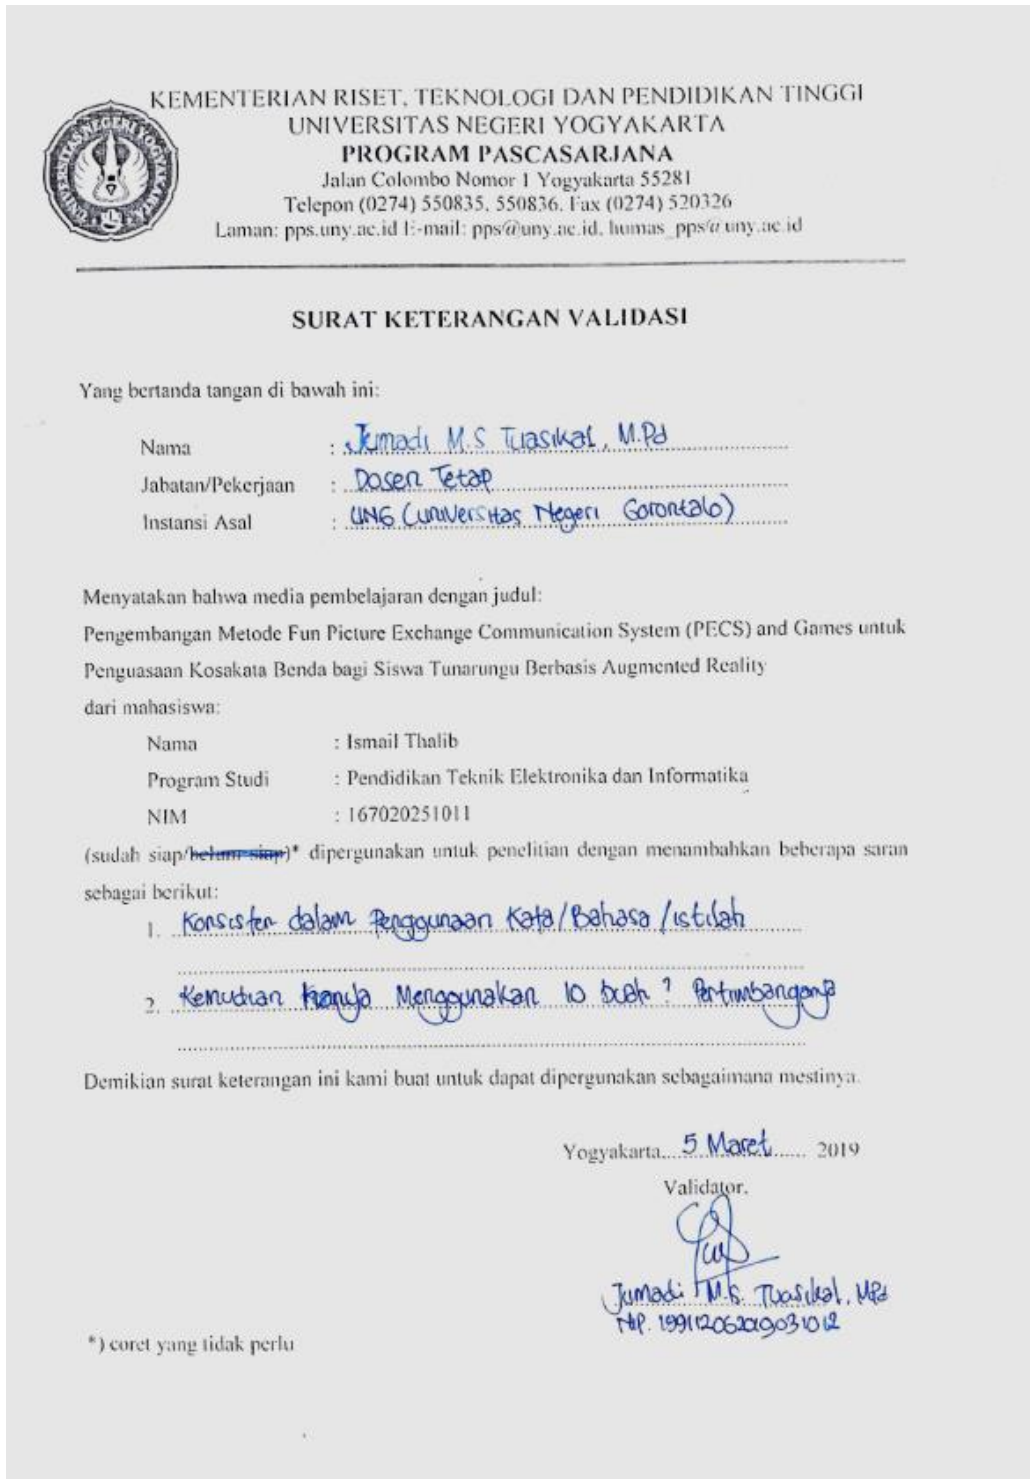 KEMENTERIAN RISET, TEKNOLOGI DAN PENDIDIKAN TINGGI
UNIVERSITAS NEGERI YOGYAKARTA
PROGRAM PASCASARJANA
Jalan Colombo Nomor 1 Yogyakarta 55281
Telepon (0274) 550835, 550836, Fax (0274) 520326
Laman: pps.uny.ac.id E-mail: pps@uny.ac.id, humas_pps@uny.ac.id
UNIVERSITAS NEGERI YOGYAKARTA
SURAT KETERANGAN VALIDASI
Yang bertanda tangan di bawah ini:
Nama : Jumadi M.S Tuasikal, M.Pd
Jabatan/Pekerjaan : Dosen Tetap
Instansi Asal : UNG (Universitas Negeri Gorontalo)
Menyatakan bahwa media pembelajaran dengan judul:
Pengembangan Metode Fun Picture Exchange Communication System (PECS) and Games untuk
Penguasaan Kosakata Benda bagi Siswa Tunarungu Berbasis Augmented Reality
dari mahasiswa:
Nama : Ismail Thalib
Program Studi : Pendidikan Teknik Elektronika dan Informatika
NIM : 167020251011
(sudah siap/belum siap)* dipergunakan untuk penelitian dengan menambahkan beberapa saran
sebagai berikut:
1. Konsisten dalam Penggunaan Kata/Bahasa/istilah
2. Kemudian hanya Menggunakan 10 buah? Pertimbangannya
Demikian surat keterangan ini kami buat untuk dapat dipergunakan sebagaimana mestinya.
Yogyakarta, 5 Maret 2019
Validator,
Jumadi M.S. Tuasikal, MPd
NIP. 199112062019031012
*) coret yang tidak perlu